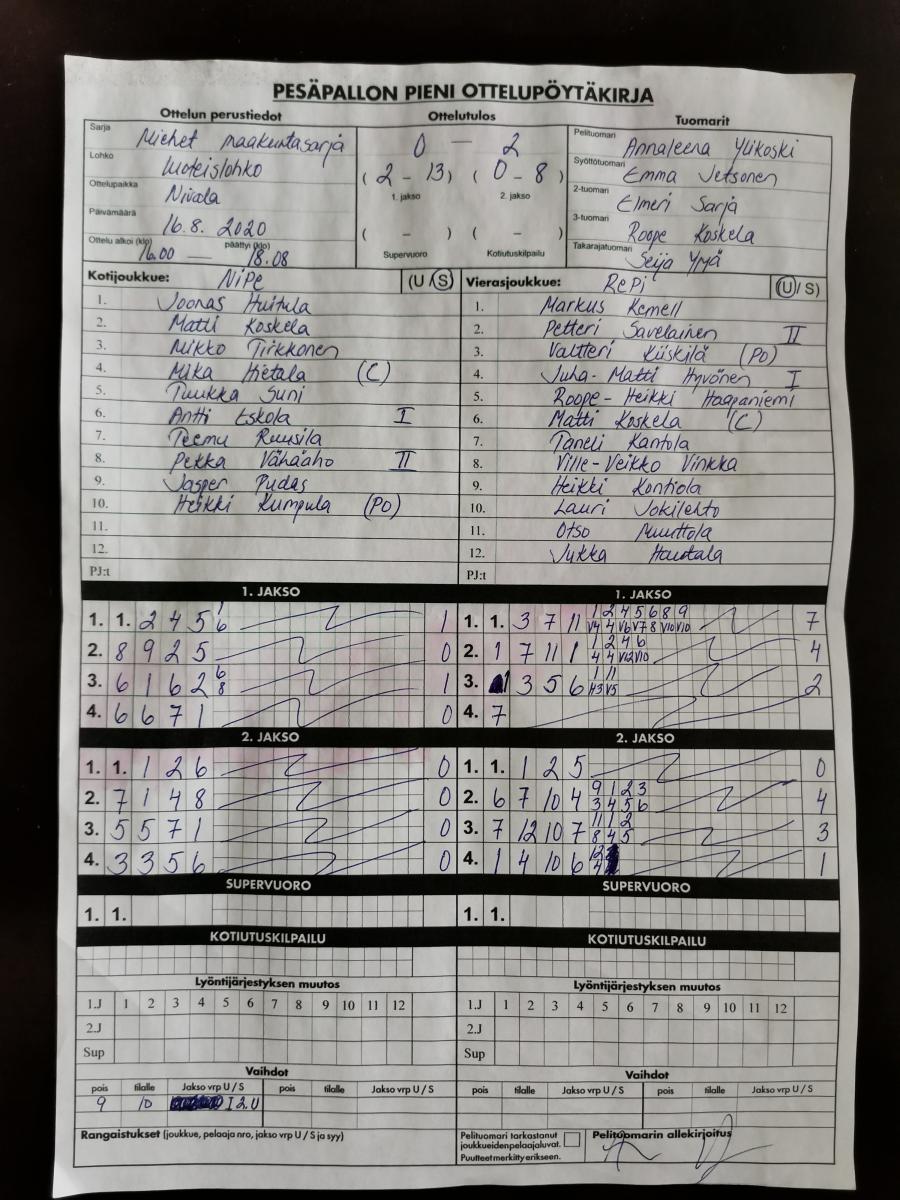 PESÄPALLON PIENI OTTELUPÖYTÄKIRJA
Ottelun perustiedot Ottelutulos Tuomarit
Sarja Miehet maakuntasarja
Lohko Luoteislohko
Ottelupaikka Nivala
Päivämäärä 16.8. 2020
Ottelu alkoi (klo) 16.00 — päättyi (klo) 18.08
0 — 2
( 2 - 13 ) ( 0 - 8 )
1. jakso 2. jakso
( - ) ( - )
Supervuoro Kotiutuskilpailu
Pelituomari Annaleena Ylikoski
Syöttötuomari Emma Jetsonen
2-tuomari Elmeri Sarja
3-tuomari Roope Koskela
Takarajatuomari Seija Ypyä
Kotijoukkue: NiPe (U / S)
1. Joonas Huitula
2. Matti Koskela
3. Mikko Tirkkonen
4. Mika Hietala (C)
5. Tuukka Suni
6. Antti Eskola I
7. Teemu Ruusila
8. Pekka Vähäaho II
9. Jasper Pudas
10. Heikki Kumpula (Po)
11.
12.
PJ:t
Vierasjoukkue: RePi (U / S)
1. Markus Kemell
2. Petteri Savelainen II
3. Valtteri Kiiskilä (Po)
4. Juha-Matti Hyvönen I
5. Roope-Heikki Haapaniemi
6. Matti Koskela (C)
7. Taneli Kantola
8. Ville-Veikko Vinkka
9. Heikki Kontiola
10. Lauri Jokilehto
11. Otso Muuttola
12. Jukka Hautala
PJ:t
1. JAKSO
1. 1. 2 4 5 1 6 1
2. 8 9 2 5 0
3. 6 1 6 2 6 8 1
4. 6 6 7 1 0
1. JAKSO
1. 1. 3 7 11 1 2 4 5 6 8 9 V4 4 V6 V7 8 V10 V10 7
2. 1 7 11 1 1 2 4 6 4 4 V12 V10 4
3. 1 3 5 6 1 11 H3 V5 2
4. 7
2. JAKSO
1. 1. 1 2 6 0
2. 7 1 4 8 0
3. 5 5 7 1 0
4. 3 3 5 6 0
2. JAKSO
1. 1. 1 2 5 0
2. 6 7 10 4 9 1 2 3 3 4 5 6 4
3. 7 12 10 7 11 1 2 8 4 5 3
4. 1 4 10 6 12 4 1
SUPERVUORO SUPERVUORO
1. 1. 1. 1.
KOTIUTUSKILPAILU KOTIUTUSKILPAILU
Lyöntijärjestyksen muutos Lyöntijärjestyksen muutos
1.J 1 2 3 4 5 6 7 8 9 10 11 12 1.J 1 2 3 4 5 6 7 8 9 10 11 12
2.J 2.J
Sup Sup
Vaihdot Vaihdot
pois tilalle Jakso vrp U / S pois tilalle Jakso vrp U / S pois tilalle Jakso vrp U / S pois tilalle Jakso vrp U / S
9 10 I 2.U
Rangaistukset (joukkue, pelaaja nro, jakso vrp U / S ja syy)
Pelituomari tarkastanut
joukkueiden pelaajaluvat.
Puutteet merkitty erikseen.
Pelituomarin allekirjoitus